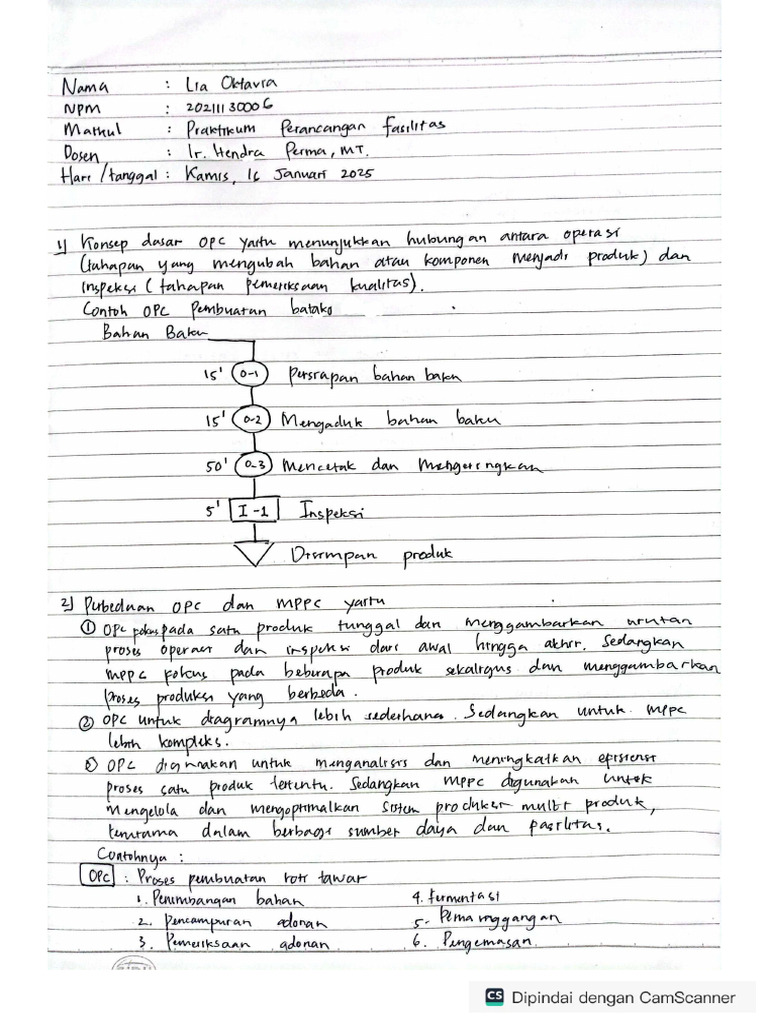 Nama : Lia Oktavia
NPM : 20211130006
Matkul : Praktikum Perancangan Fasilitas
Dosen : Ir. Hendra Perma, MT.
Hari/tanggal : Kamis, 16 Januari 2025
1) Konsep dasar OPC yaitu menunjukkan hubungan antara operasi
(tahapan yang mengubah bahan atau komponen menjadi produk) dan
inspeksi (tahapan pemeriksaan kualitas).
Contoh OPC Pembuatan batako
Bahan Baku
15' O-1 Persiapan bahan baku
15' O-2 Mengaduk bahan baku
50' O-3 Mencetak dan Mengeringkan
5' I-1 Inspeksi
Disimpan produk
2) Perbedaan OPC dan MPPC yaitu
① OPC fokus pada satu produk tunggal dan menggambarkan urutan
proses operasi dan inspeksi dari awal hingga akhir. Sedangkan
MPPC fokus pada beberapa produk sekaligus dan menggambarkan
proses produksi yang berbeda.
② OPC untuk diagramnya lebih sederhana. Sedangkan untuk MPPC
lebih kompleks.
③ OPC digunakan untuk menganalisis dan meningkatkan efisiensi
proses satu produk tertentu. Sedangkan MPPC digunakan untuk
mengelola dan mengoptimalkan sistem produksi multi produk,
terutama dalam berbagi sumber daya dan fasilitas.
Contohnya :
OPC : Proses pembuatan roti tawar
1. Penimbangan bahan 4. Fermentasi
2. Pencampuran adonan 5. Pemanggangan
3. Pemeriksaan adonan 6. Pengemasan
CS Dipindai dengan CamScanner